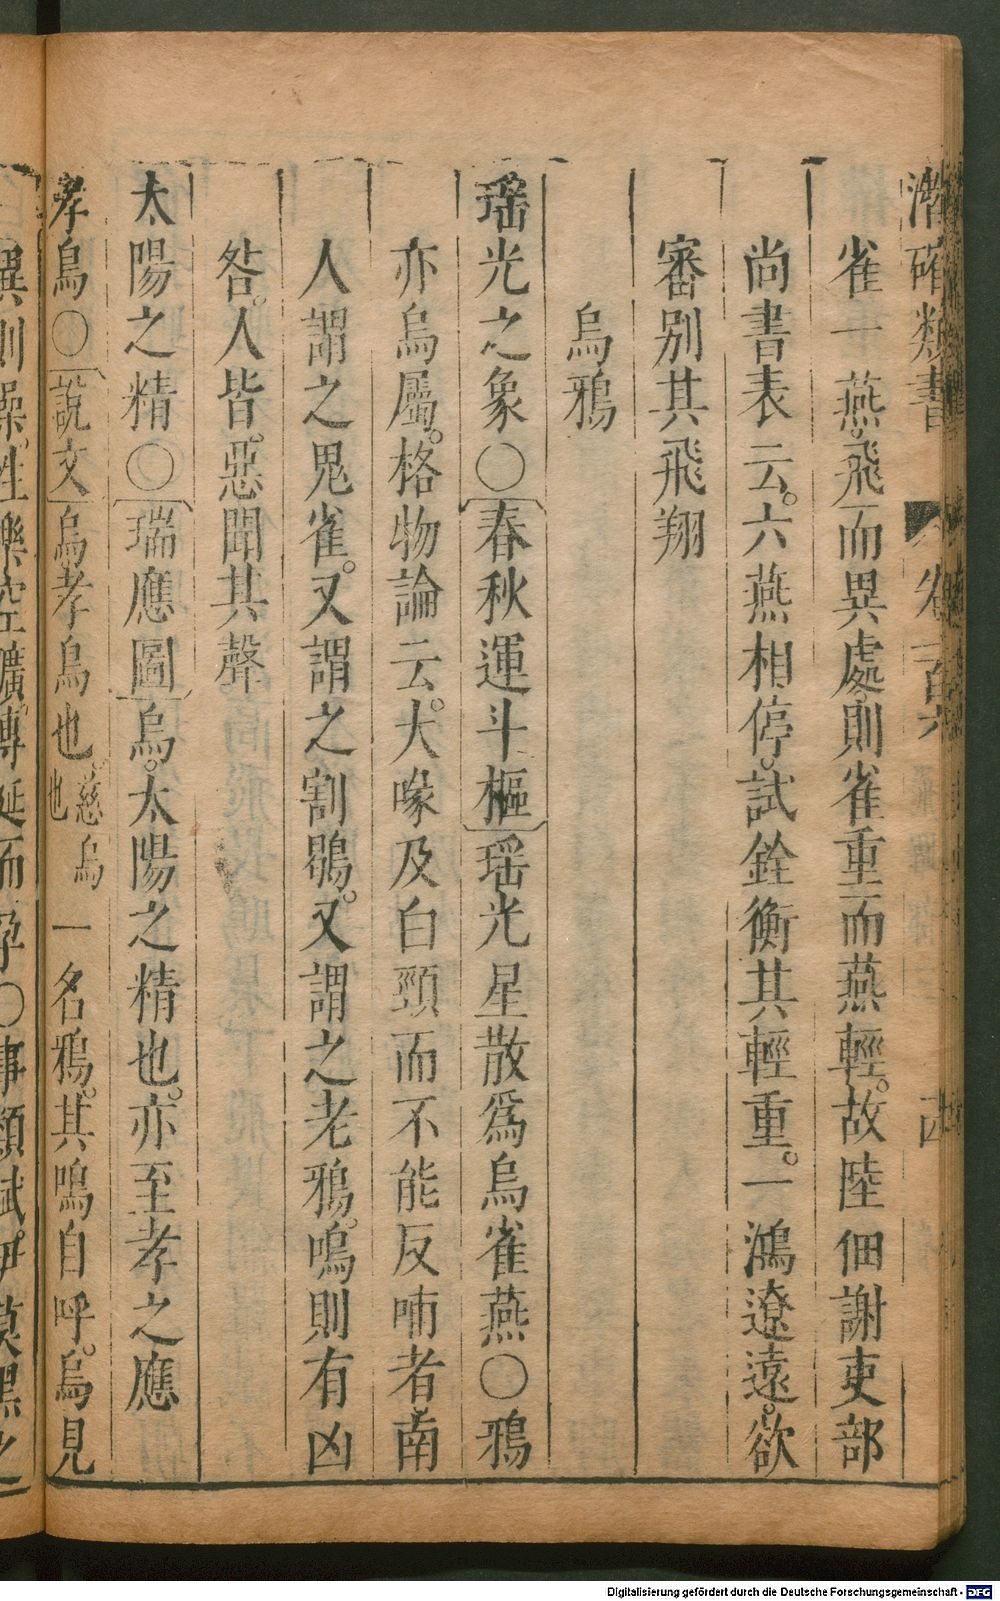 潛確類書 卷一百六 古
雀一燕飛而異處則雀重而燕輕。故陸佃謝吏部
尚書表云。六燕相停。試銓衡其輕重。一鴻遼遠。欲
審別其飛翔
烏鴉
瑶光之象○春秋運斗樞瑶光星散爲烏雀燕○鴉
亦烏屬。格物論云。大喙及白頸而不能反哺者。南
人謂之鬼雀。又謂之割鴞。又謂之老鴉。鳴則有凶
咎。人皆惡聞其聲
太陽之精○瑞應圖烏。太陽之精也。亦至孝之應
孝鳥○說文烏孝鳥也慈烏也一名鴉。其鳴自呼。烏見
異則噪。性樂空曠。傳涎而孕○事類賦。伊莫黑之
Digitalisierung gefördert durch die Deutsche Forschungsgemeinschaft - DFG